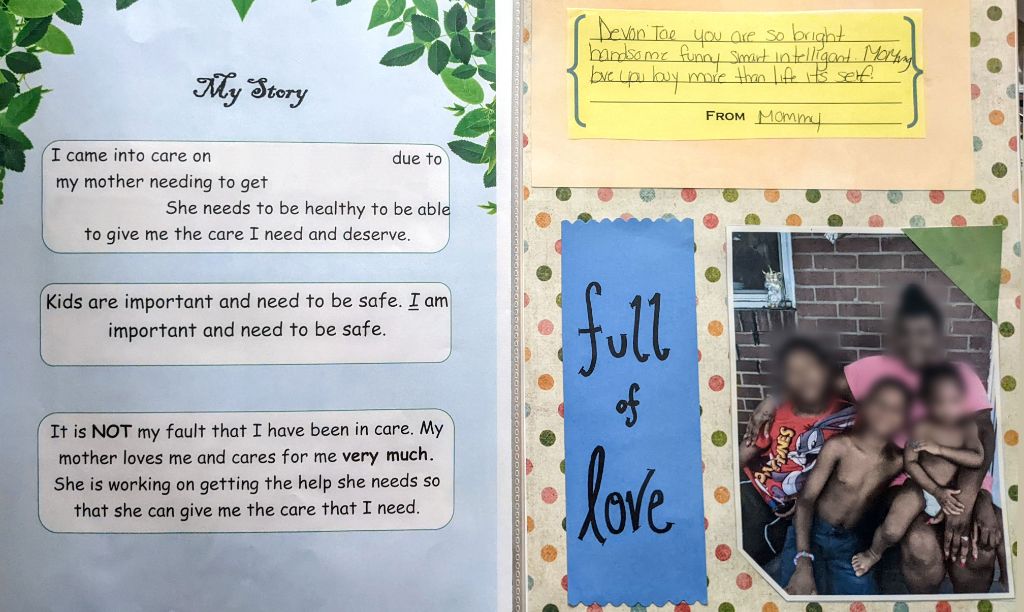 My Story
I came into care on due to
my mother needing to get
She needs to be healthy to be able
to give me the care I need and deserve.
Kids are important and need to be safe. I am
important and need to be safe.
It is NOT my fault that I have been in care. My
mother loves me and cares for me very much.
She is working on getting the help she needs so
that she can give me the care that I need.
Devon Tae you are so bright
handsome funny smart intelligant Mommy
love you buy more than life its self.
FROM Mommy
full
of
love